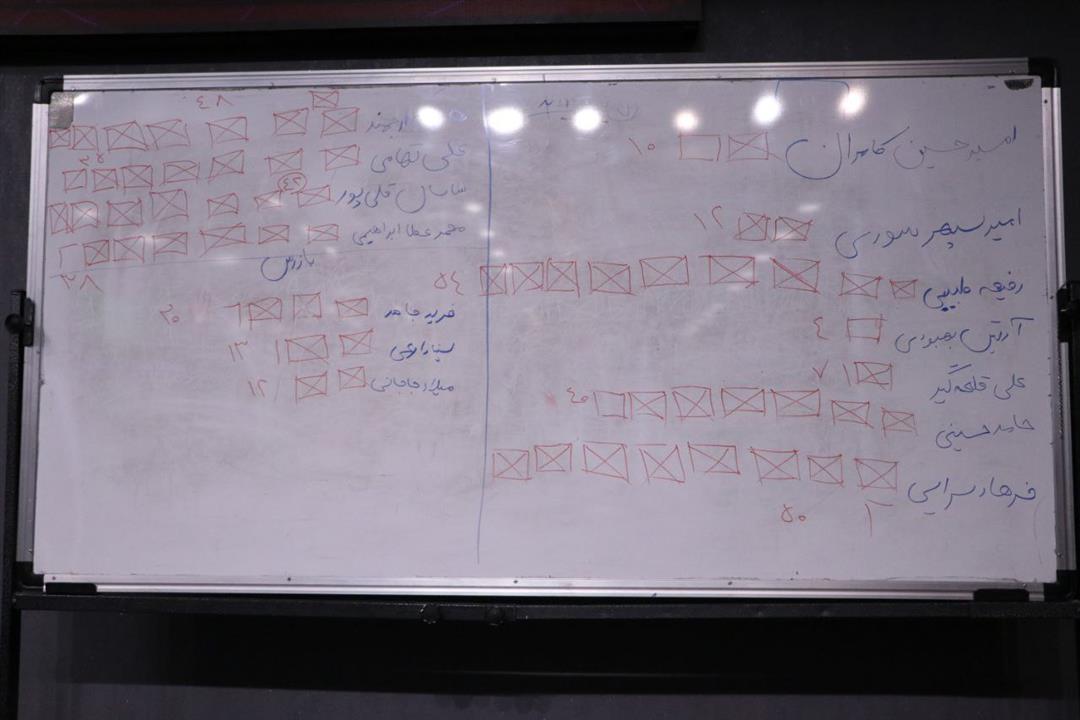 امیرحسین کامران ۱۰
امیر سپهر سوری ۱۲
رفیعه طبیبی ۵٤
آرتین بهبودی ٤
علی قلعه گیر ۷
حامد حسینی ٤۰
فرهاد سرایی
۵۰
۷٤
ارجمند
علی تهامی
ساسان قلی پور ٤۲
محمد عطا ابراهیمی
۳۸
بازرس
فرید حامد ۲۰
۱۳
میلاد جاجانی ۱۲